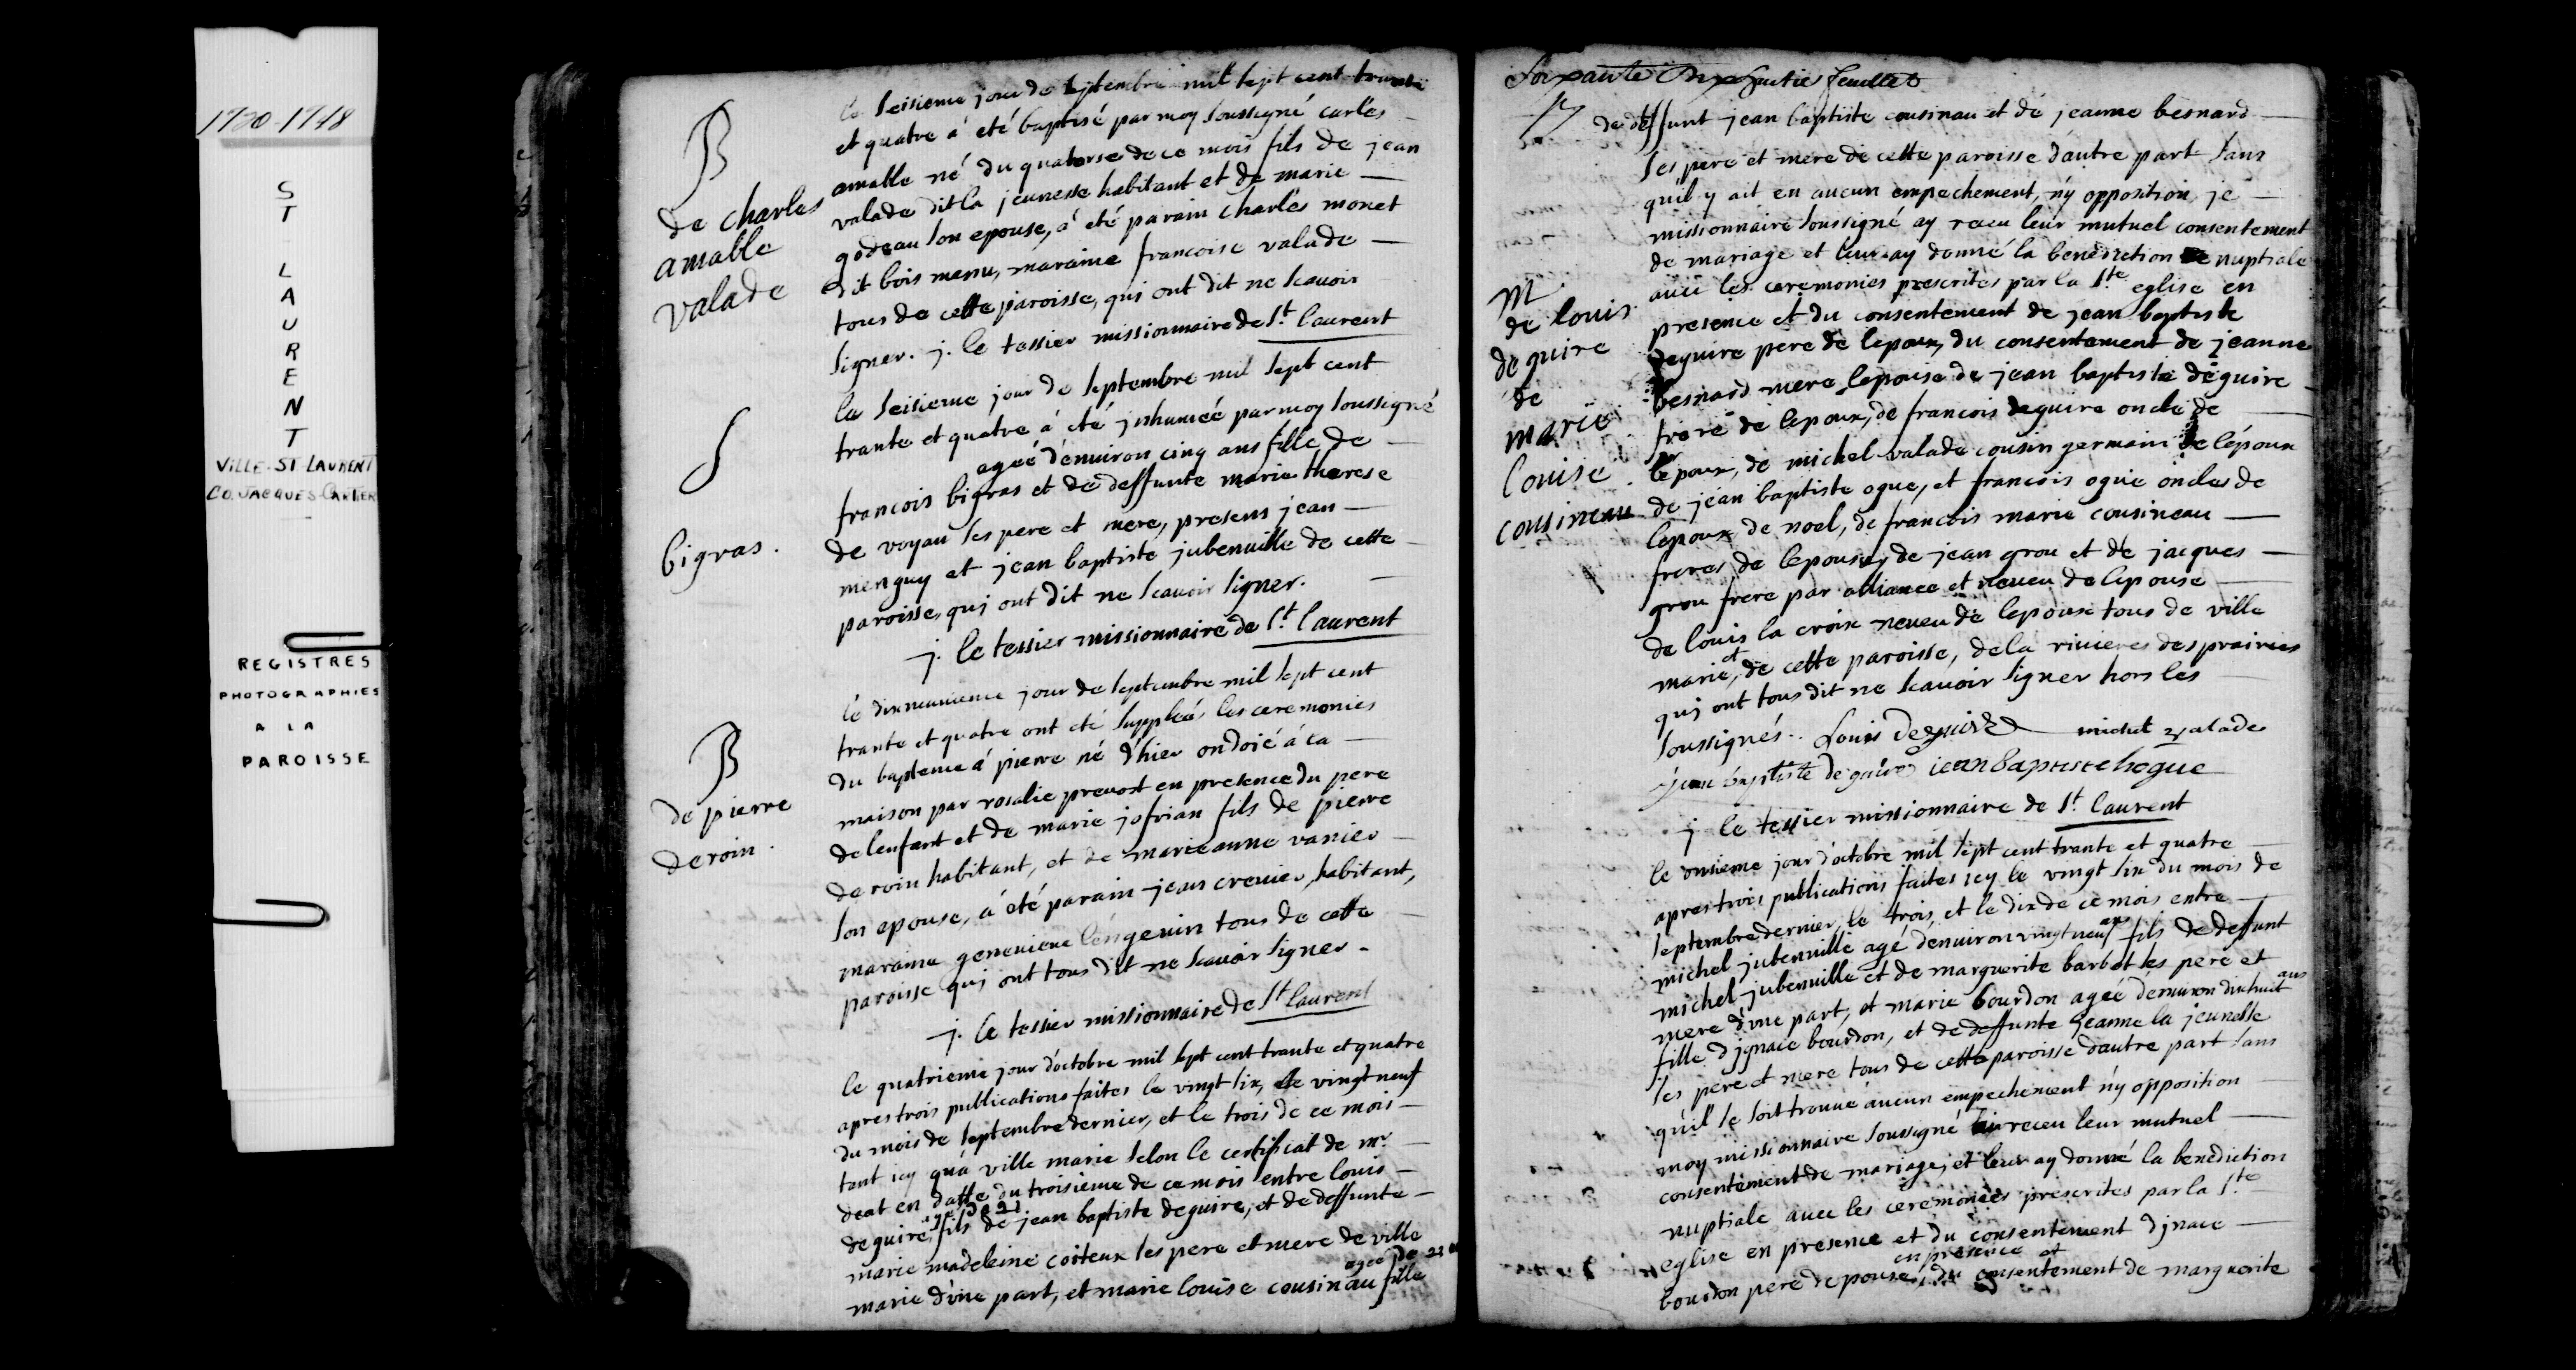 1720-1748
ST LAURENT
VILLE-ST-LAURENT
CO. JACQUES-CARTIER
REGISTRES
PHOTOGRAPHIES
A LA
PAROISSE
B
de charles
amable
valade
le seisieme jour de septembre mil sept cent trante
et quatre à eté baptisé par moy soussigné carles
amable né du quatorse de ce mois fils de jean
valade dit la jeunesse habitant et de marie
godeau son epouse, à eté parain charles monet
dit bois menu, maraine francoise valade
tous de cette paroisse, qui ont dit ne scavoir
signer. j. le tessier missionnaire de st laurent
S
bigras.
le seisieme jour de septembre mil sept cent
trante et quatre à eté inhumeé par moy soussigné
ageé d'environ cinq ans fille de
francois bigras et de deffunte marie therese
de voyau ses pere et mere, presens jean
menguy et jean baptiste jubenville de cette
paroisse, qui ont dit ne scavoir signer.
j. le tessier missionnaire de st laurent
B
de pierre
deroin.
le dixneuvieme jour de septembre mil sept cent
trante et quatre ont eté suppleés les ceremonies
du bapteme à pierre né d'hier ondoié à la
maison par rosalie prevost en presence du pere
de lenfant et de marie jofrian fils de pierre
deroin habitant, et de marieanne vanier
son epouse, à eté parain jean crevier, habitant,
maraine genevieve lengevin tous de cette
paroisse qui ont tous dit ne scavoir signer.
j. le tessier missionnaire de st laurent
le quatrieme jour d'octobre mil sept cent trante et quatre
apres trois publications faites le vingt six, le vingt neuf
du mois de septembre dernier, et le trois de ce mois
tant icy qu'à ville marie selon le certificat de mr
deat en datte du troisieme de ce mois entre louis
agé de 21
deguire, fils de jean baptiste deguire, et de deffunte
marie madeleine coiteux ses pere et mere de ville
ageé de 23
marie d'une part, et marie louise cousinau fille
soixante Dix huitie feuillet
de deffunt jean baptiste cousinau et de jeanne besnard
ses pere et mere de cette paroisse d'autre part sans
qu'il y ait eu aucun empechement, ny opposition je
missionnaire soussigné ay receu leur mutuel consentement
de mariage et leur ay donné la benediction nuptiale
avec les ceremonies prescrites par la ste eglise en
M
de louis
deguire
de
marie
louise
cousineau
presence et du consentement de jean baptiste
deguire pere de lepoux, du consentement de jeanne
besnard mere lepouse de jean baptiste deguire
frere de lepoux, de francois deguire oncle de
lepoux, de michel valade cousin germain de l'époux
de jean baptiste ogue, et francois ogue oncles de
lepoux de noel, de francois marie cousineau
freres de lepouse, de jean grou et de jacques
grou frere par alliance et neveu de lepouse
de louis la croix neveu de lepoux tous de ville
marie, et de cette paroisse, de la rivieres des prairies
qui ont tous dit ne scavoir signer hors les
soussignés. Louis Deguire michel valade
jean baptiste deguire jean baptiste hogue
j le tessier missionnaire de st laurent
le onsieme jour d'octobre mil sept cent trante et quatre
apres trois publications faites icy le vingt six du mois de
septembre dernier, le trois, et le dix de ce mois entre
michel jubenville agé d'environ vingt neuf ans fils de deffunt
michel jubenville et de marguerite barbot ses pere et
mere d'une part, et marie bourdon ageé d'environ dixhuit ans
fille d'ignace bourdon, et de deffunte jeanne la jeunesse
ses pere et mere tous de cette paroisse d'autre part sans
qu'il se soit trouvé aucun empechement n'y opposition
moy missionnaire soussigné receu leur mutuel
consentement de mariage, et leur ay donné la benediction
nuptiale avec les ceremonies prescrites par la ste
eglise en presence et du consentement d'jnace
en presence et
bourdon pere depouse, du consentement de marguerite